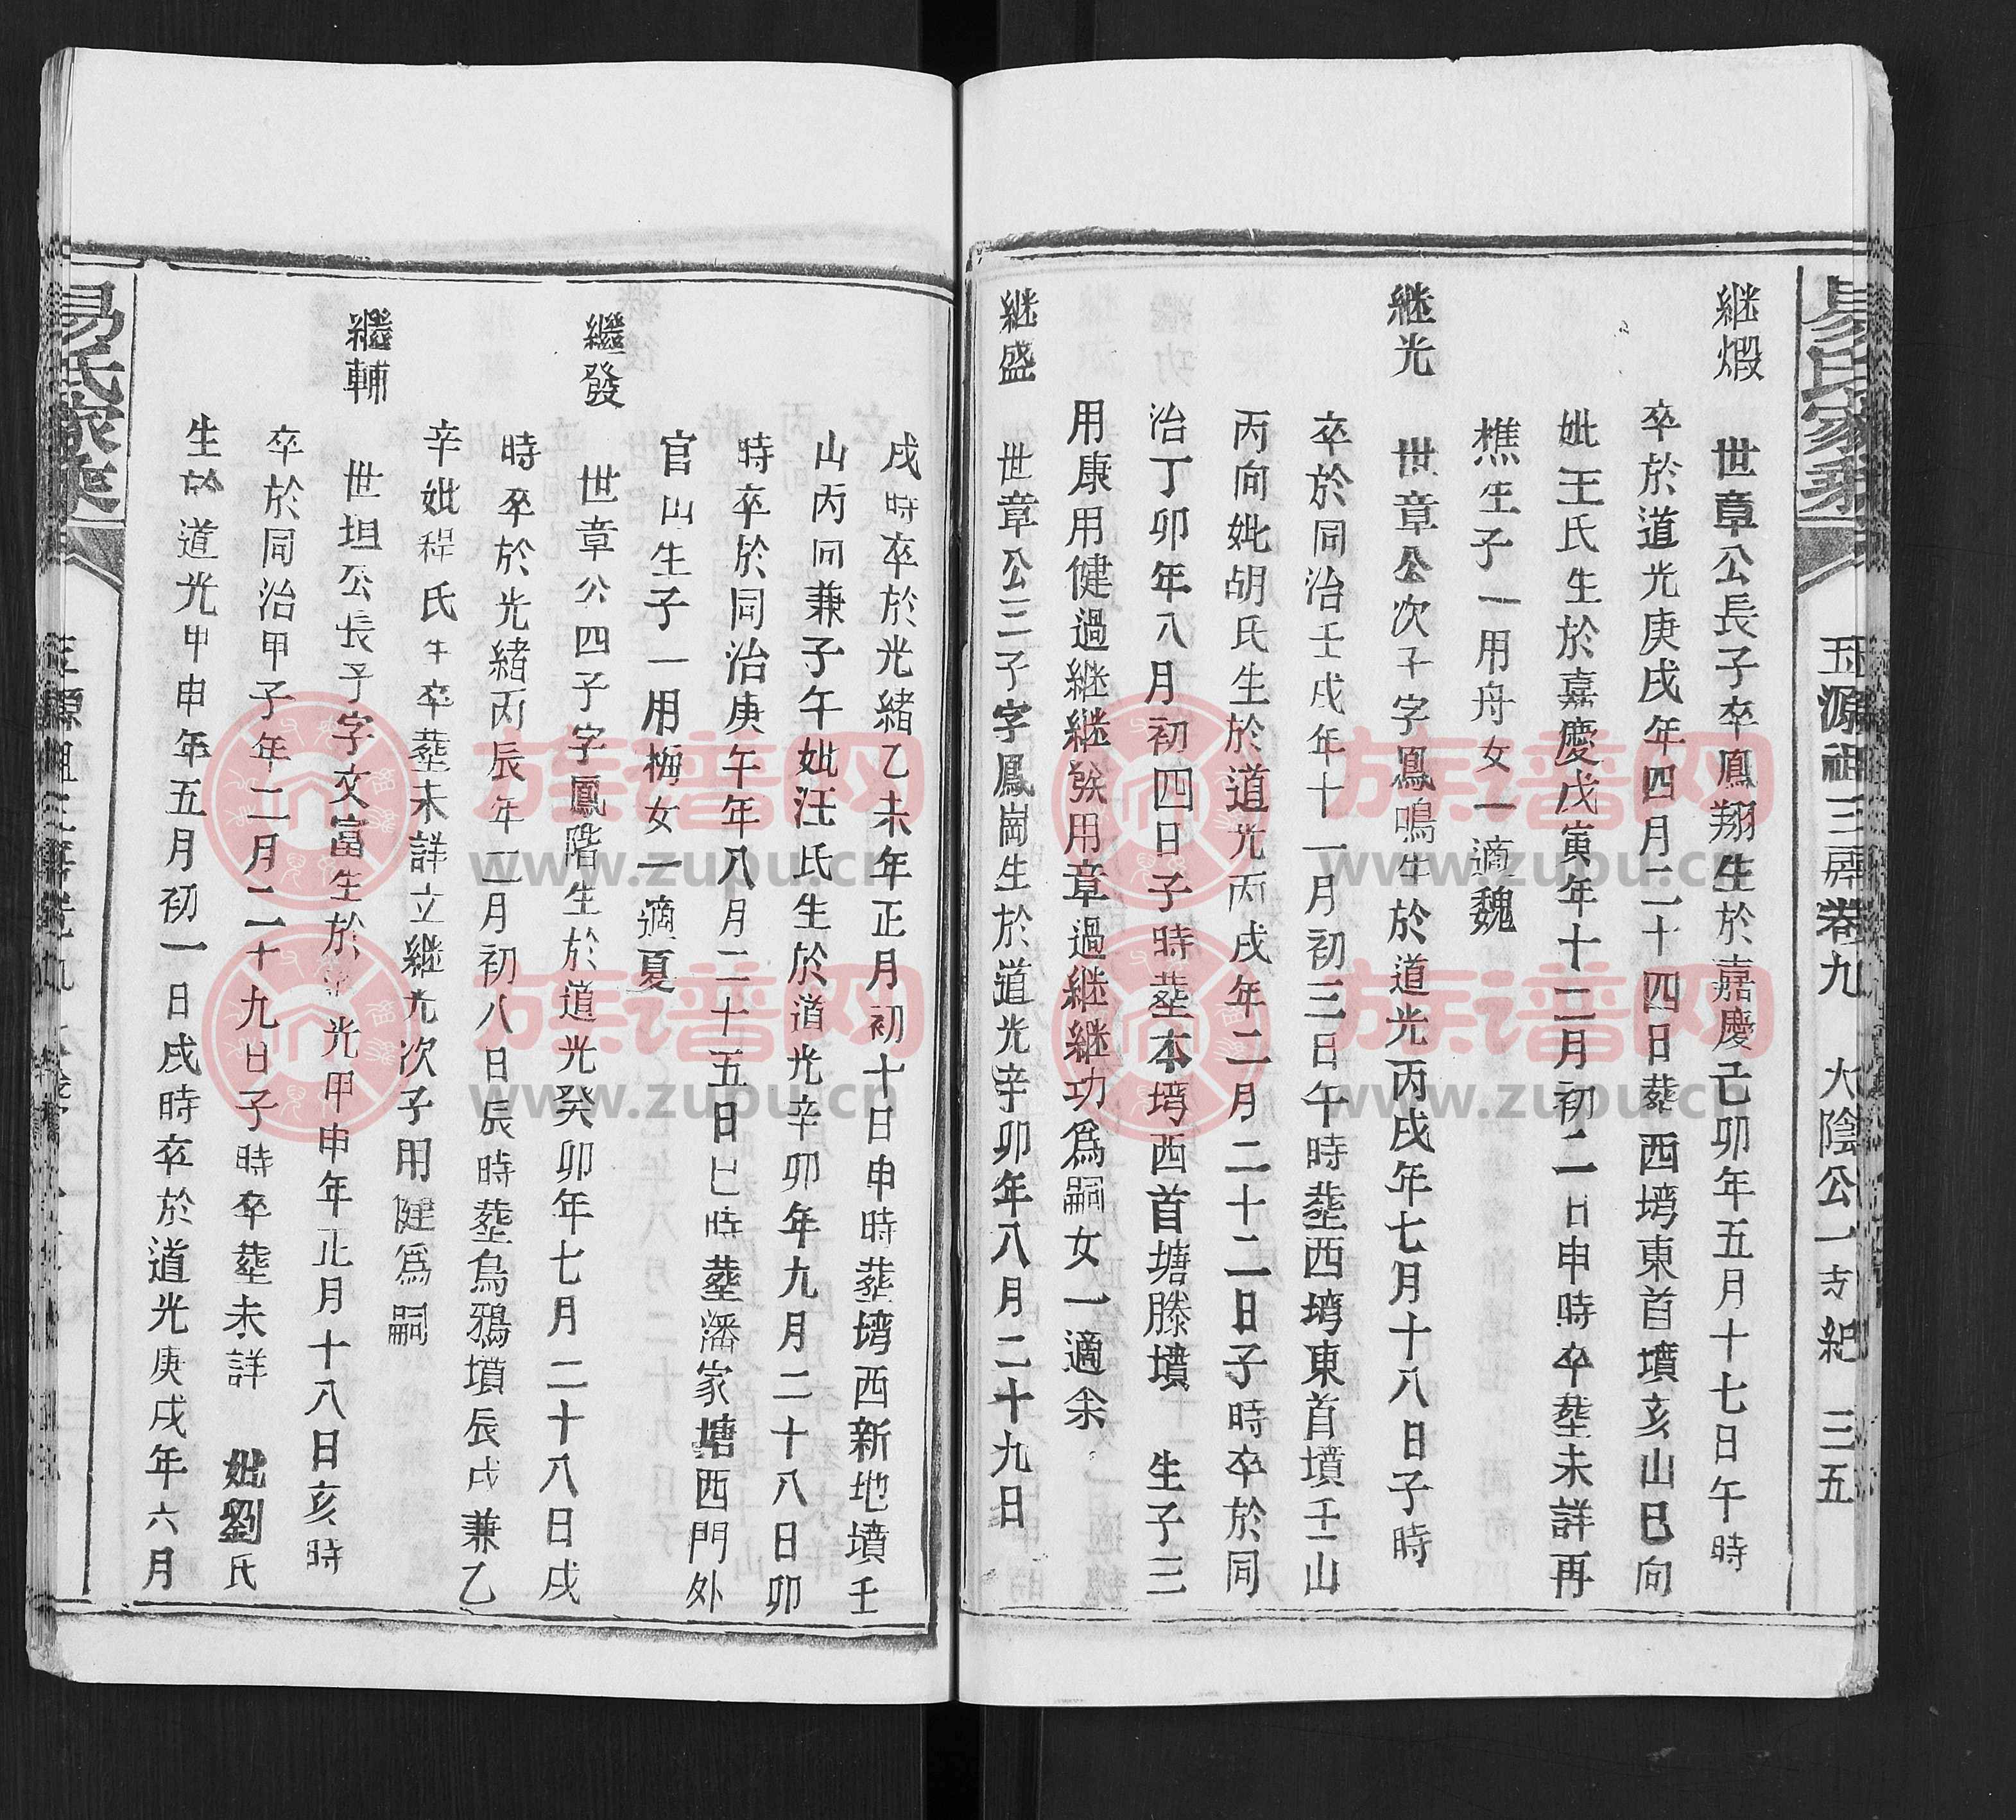 易氏家乘
玉源祖三房卷九 大陰公一支紀 三五
継煅 世章公長子卒鳳翔生於嘉慶己卯年五月十七日午時
卒於道光庚戌年四月二十四日塟西塆東首墳亥山巳向
妣王氏生於嘉慶戊寅年十二月初二日申時卒塟未詳再
樵生子一用舟女一適魏
継光 世章公次子字鳳鳴生於道光丙戌年七月十八日子時
卒於同治壬戌年十一月初三日午時塟西塆東首墳壬山
丙向妣胡氏生於道光丙戌年二月二十二日子時卒於同
治丁卯年八月初四日子時塟本塆西首塘塍墳 生子三
用康用健過継継發用章過継継功爲嗣女一適余
継盛 世章公三子字鳳崗生於道光辛卯年八月二十九日
戌時卒於光緒乙未年正月初十日申時塟塆西新地墳壬
山丙向兼子午妣汪氏生於道光辛卯年九月二十八日卯
時卒於同治庚午年八月二十五日巳時塟潘家塘西門外
官山生子一用梅女一適夏
繼發 世章公四子字鳳階生於道光癸卯年七月二十八日戌
時卒於光緒丙辰年二月初八日辰時塟烏鴉墳辰戌兼乙
辛妣程氏生卒塟未詳立継光次子用健爲嗣
繼輔 世坦公長子字文富生於光甲申年正月十八日亥時
卒於同治甲子年二月二十九日子時卒塟未詳 妣劉氏
生於道光甲申年五月初一日戌時卒於道光庚戌年六月
易氏家乘
族谱网
www.zupu.cn
族谱网
www.zupu.cn
族谱网
www.zupu.cn
族谱网
www.zupu.cn